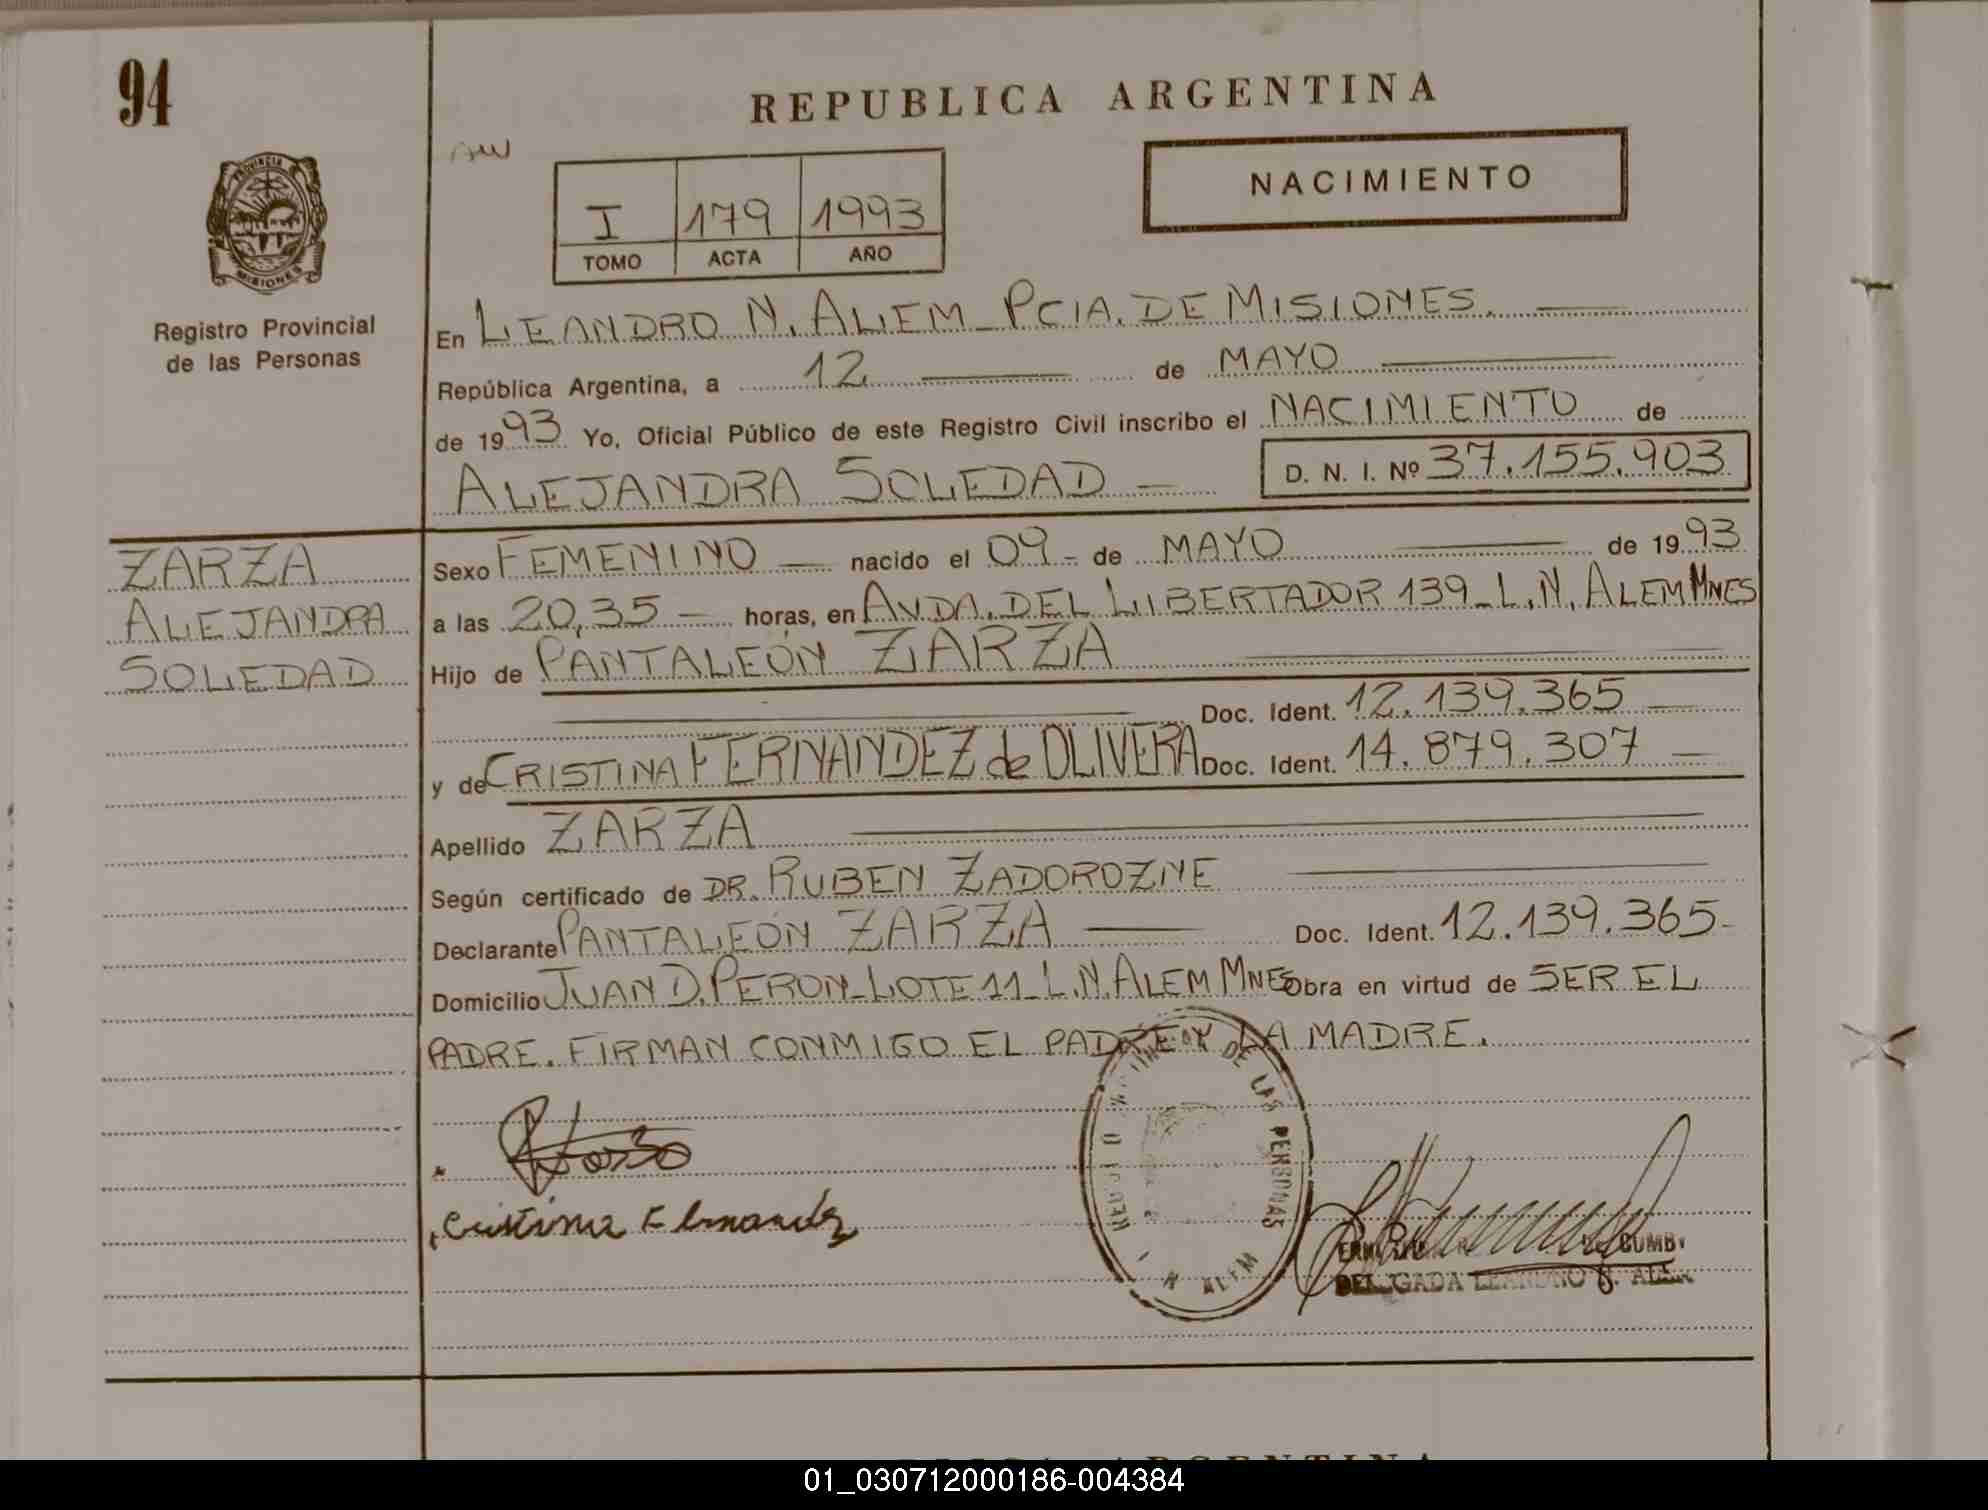 94
REPUBLICA ARGENTINA
NACIMIENTO
PROVINCIA
MISIONES
Registro Provincial
de las Personas
I 179 1993
TOMO ACTA AÑO
En LEANDRO N. ALEM - PCIA. DE MISIONES.
República Argentina, a 12 de MAYO
de 1993 Yo, Oficial Público de este Registro Civil inscribo el NACIMIENTO de
ALEJANDRA SOLEDAD — D. N. I. Nº 37.155.903
ZARZA
ALEJANDRA
SOLEDAD
Sexo FEMENINO — nacido el 09 - de MAYO — de 1993
a las 20,35 — horas, en AVDA. DEL LIBERTADOR 139 - L. N. ALEM MNES
Hijo de PANTALEÓN ZARZA
Doc. Ident. 12.139.365 —
y de CRISTINA FERNANDEZ de OLIVERA Doc. Ident. 14.879.307 —
Apellido ZARZA
Según certificado de DR. RUBEN ZADOROZNE
Declarante PANTALEÓN ZARZA — Doc. Ident. 12.139.365 -
Domicilio JUAN D. PERON - LOTE 11 - L. N. ALEM MNES Obra en virtud de SER EL
PADRE. FIRMAN CONMIGO EL PADRE Y LA MADRE.
DE LAS PERSONAS
N ALEM
Cristina Fernandez
01_030712000186-004384